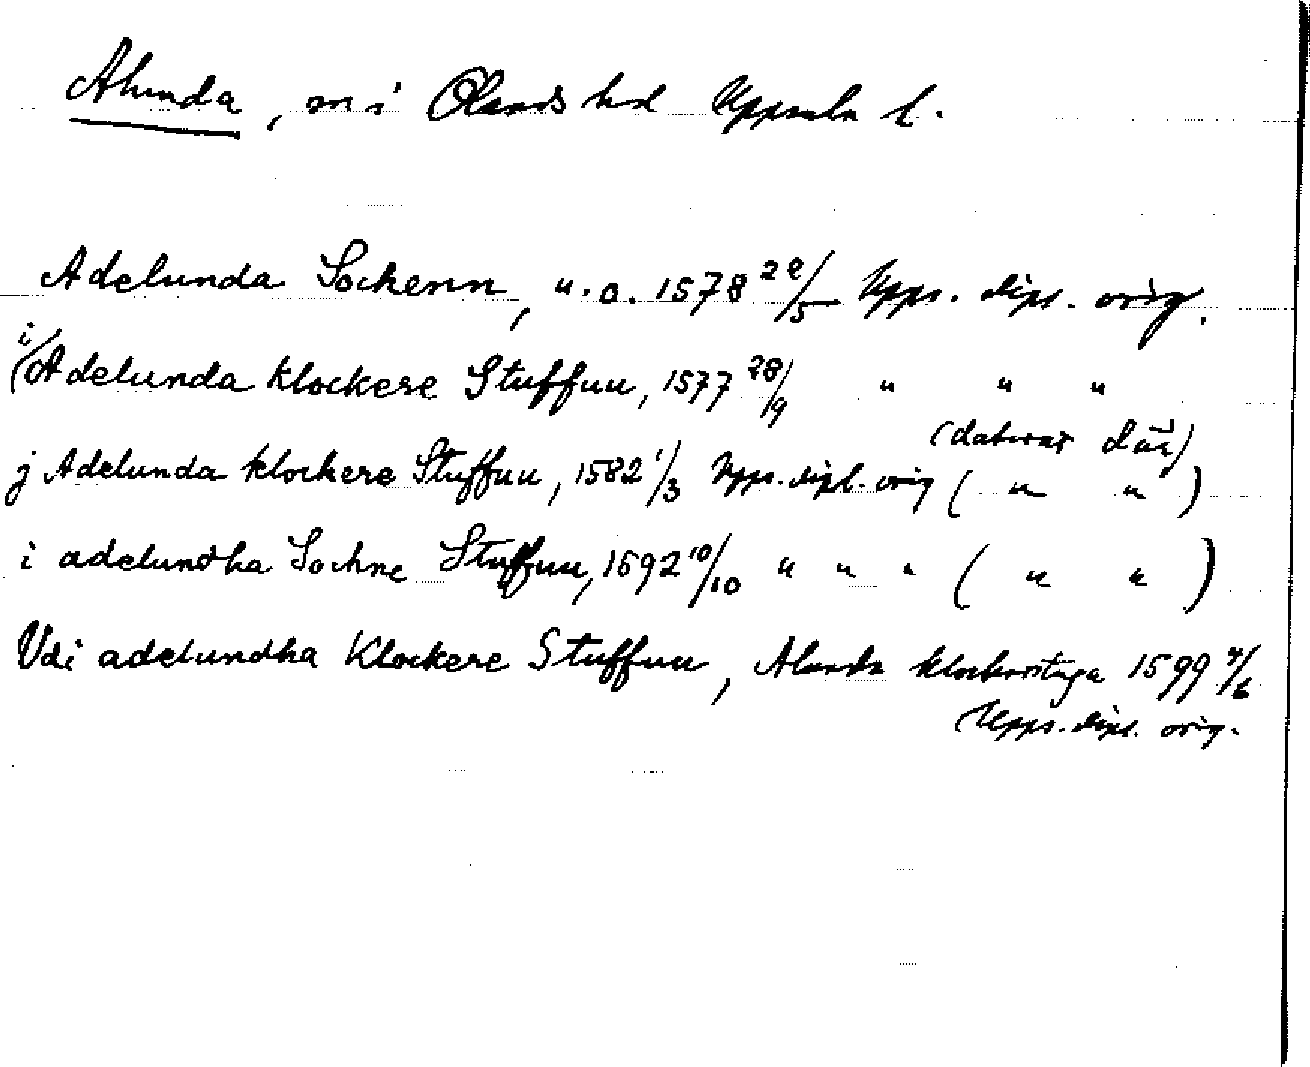 Alunda, sn i Olands hd Uppsala l.
Adelunda Sockenn, u.o. 1578 28/5 Upps. dipl. orig.
i/(Adelunda klockere Stuffuu, 1577 28/9 " " "
(daterat där)
j Adelunda klockere Stuffuu, 1582 1/3 Upps. dipl. orig ( " " )
i adelundha Sochne Stuffuu, 1592 10/10 " " " ( " " )
Vdi adelundha Klockere Stuffuu, Alunda klockarstuga 1599 4/6
(Upps. dipl. orig.